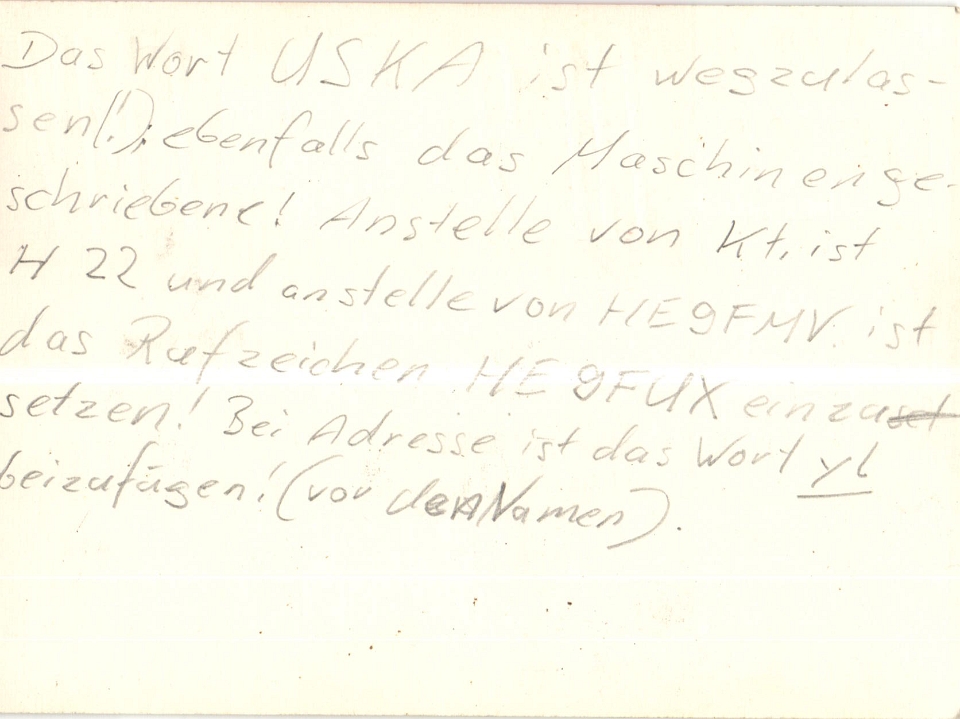 Das Wort USKA ist wegzulas-
sen(!); ebenfalls das Maschinenge-
schriebene! Anstelle von Kt. ist
H 22 und anstelle von HE9FMV ist
das Rufzeichen HE9FUX einzuset
setzen! Bei Adresse ist das Wort yl
beizufügen! (vor den Namen).